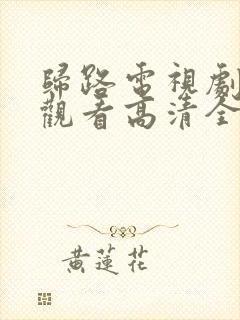 歸路電視劇
觀看高清全
黃蓮花